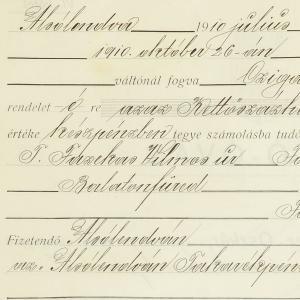 Alsólendva 1910 július
1910. október 26-án
váltónál fogva Czigá
rendelet é re azaz Kettőszázh
értéke készpénzben tegye számolásba tudó
T. Fazekas Vilmos úr
Balatonfüred
Fizetendő Alsólendván
az. Alsólendván Takarékpén